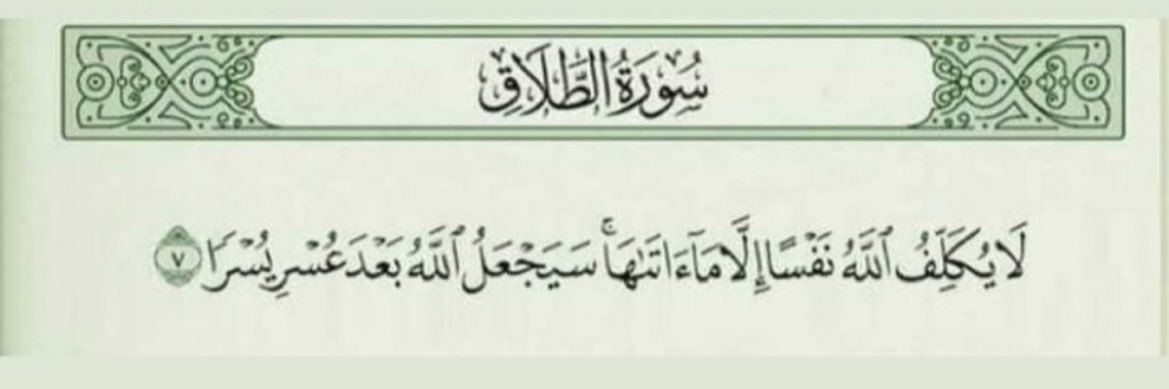 سُورَةُ الطَّلَاقِ
لَا يُكَلِّفُ ٱللَّهُ نَفْسًا إِلَّا مَآ ءَاتَىٰهَا ۚ سَيَجْعَلُ ٱللَّهُ بَعْدَ عُسْرٍ يُسْرًا ٧